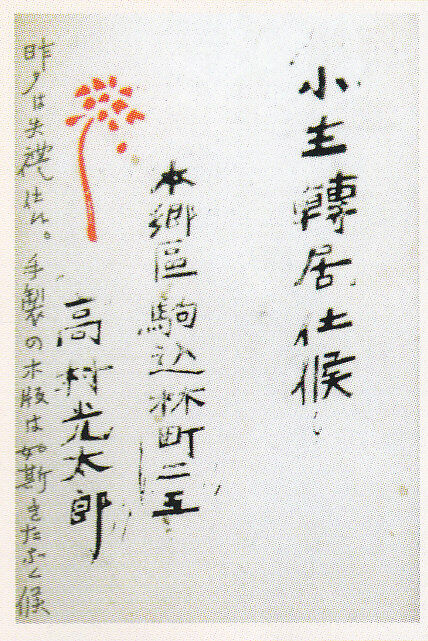 小生轉居仕候
本郷區駒込林町二五
高村光太郎
昨夕は失禮仕候。手製の木版は如斯きたなく候